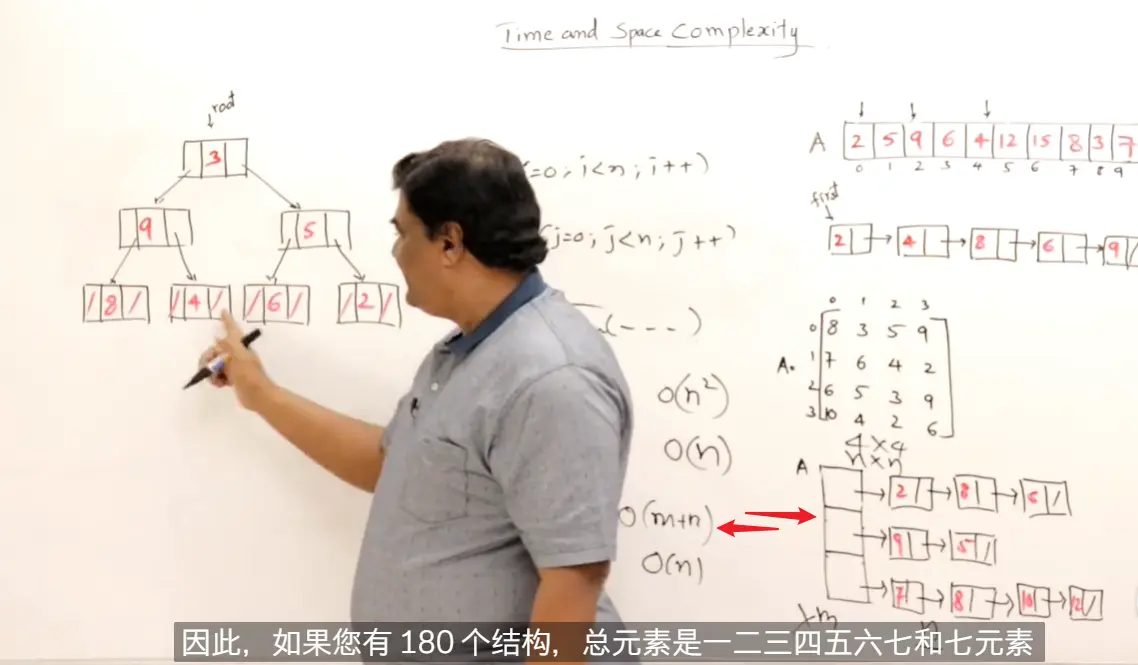 Time and Space Complexity
root
3
9 5
/ 8 / / 4 / / 6 / / 2 /
=0; i<n; i++)
j=0; j<n; j++)
(---)
O(n²)
O(n)
O(m+n)
O(n)
A 2 5 9 6 4 12 15 8 3 7
0 1 2 3 4 5 6 7 8 9
first
2 4 8 6 9 /
0 1 2 3
0 8 3 5 9
A. 1 7 6 4 2
2 6 5 3 9
3 10 4 2 6
4×4
n×n
A
2 8 6 /
9 5 /
7 8 10 12 /
m n
因此，如果您有 180 个结构，总元素是一二三四五六七和七元素